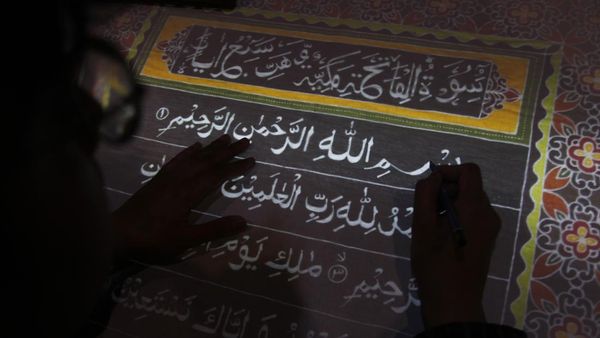 سُوْرَةُ الفَاتِحَة مَكِيَّة وَهِيَ سَبْعُ اٰيَات
بِسْمِ اللّٰهِ الرَّحْمٰنِ الرَّحِيْمِ ١
لِلّٰهِ رَبِّ الْعٰلَمِيْنَ
الرَّحِيْمِ ٣ مٰلِكِ يَوْمِ
وَاِيَّاكَ نَسْتَعِيْنُ